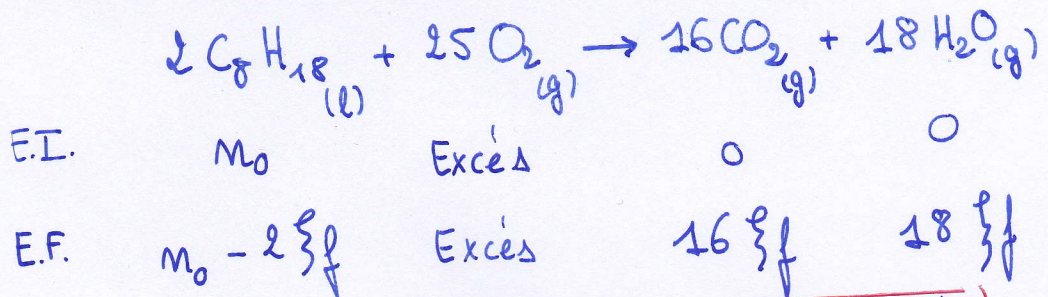 2 C₈H₁₈(l) + 25 O₂(g) → 16 CO₂(g) + 18 H₂O(g)
E.I. n₀ Excés 0 0
E.F. n₀ - 2 ξf Excés 16 ξf 18 ξf